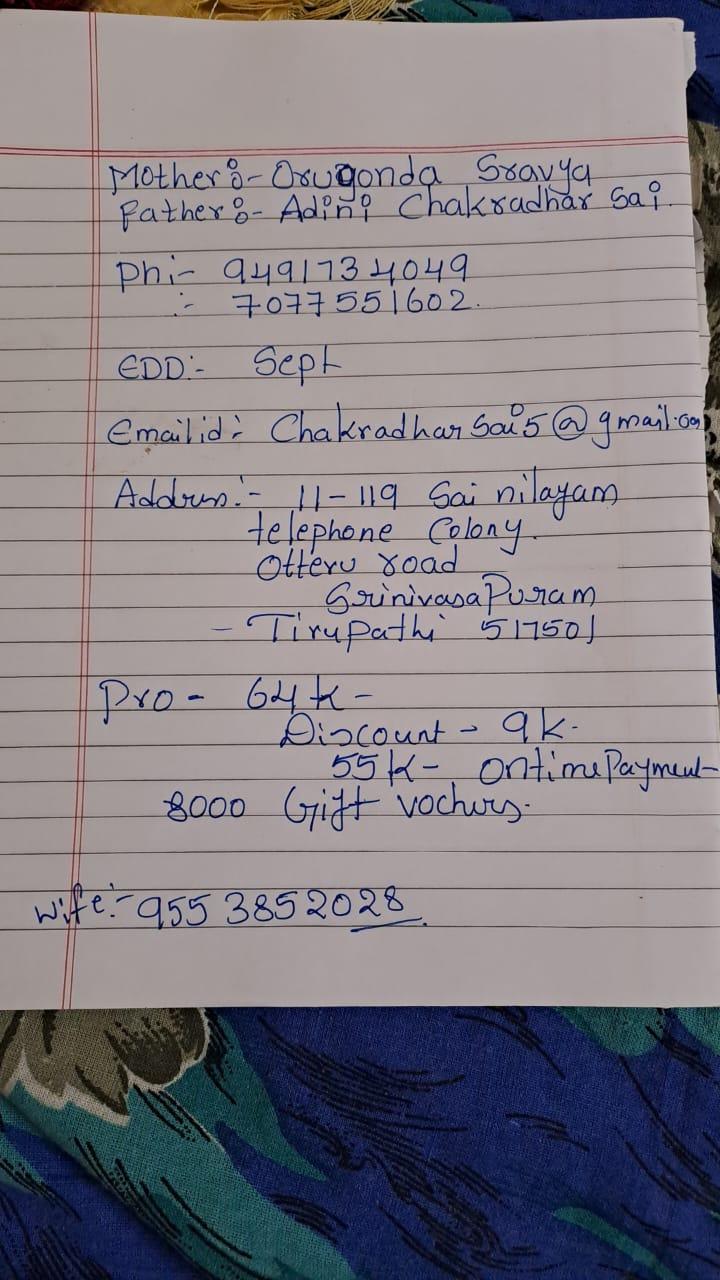 Mother:- Orugonda Sravya
Father:- Adini Chakradhar Sai.
Ph:- 9491734049
:- 7077551602.
EDD:- Sept
Email id:- Chakradhar Sai5@gmail.com
Address:- 11-119 Sai nilayam
telephone Colony.
Otteru road
Srinivasa Puram
- Tirupathi 517501
Pro - 64k-
Discount - 9k-
55k- ontime Payment-
8000 Gift vochers.
Wife:- 9553852028.